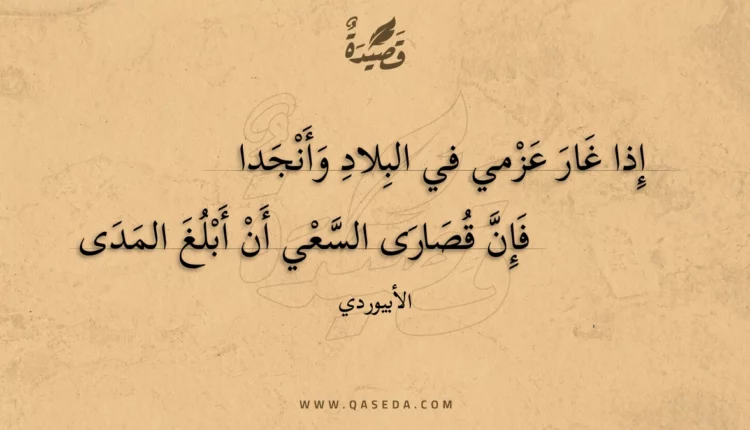 قَصِيْدَةٌ
إِذا غَارَ عَزْمي في البِلادِ وَأَنْجَدا
فَإِنَّ قُصَارَى السَّعْي أَنْ أَبْلُغَ المَدَى
الأبيوردي
WWW.QASEDA.COM